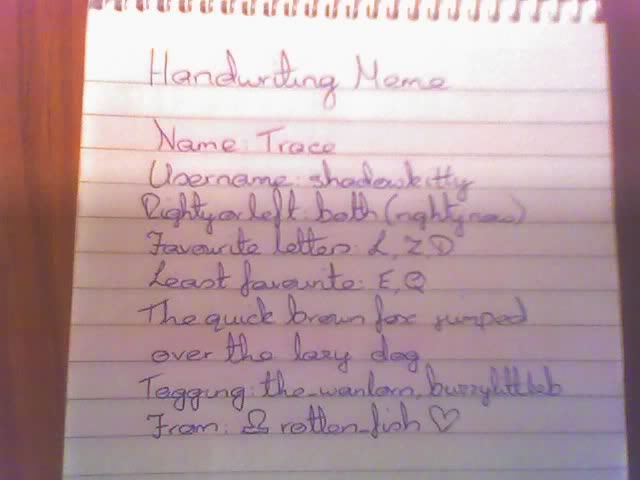 Handwriting Meme
Name: Trace
Username: shadowkitty
Righty or left: both (righty now)
Favourite letters: L, Z, D
Least favourite: E, Q
The quick brown fox jumped
over the lazy dog
Tagging: the_wanlorn,
From: rotten_fish ♡